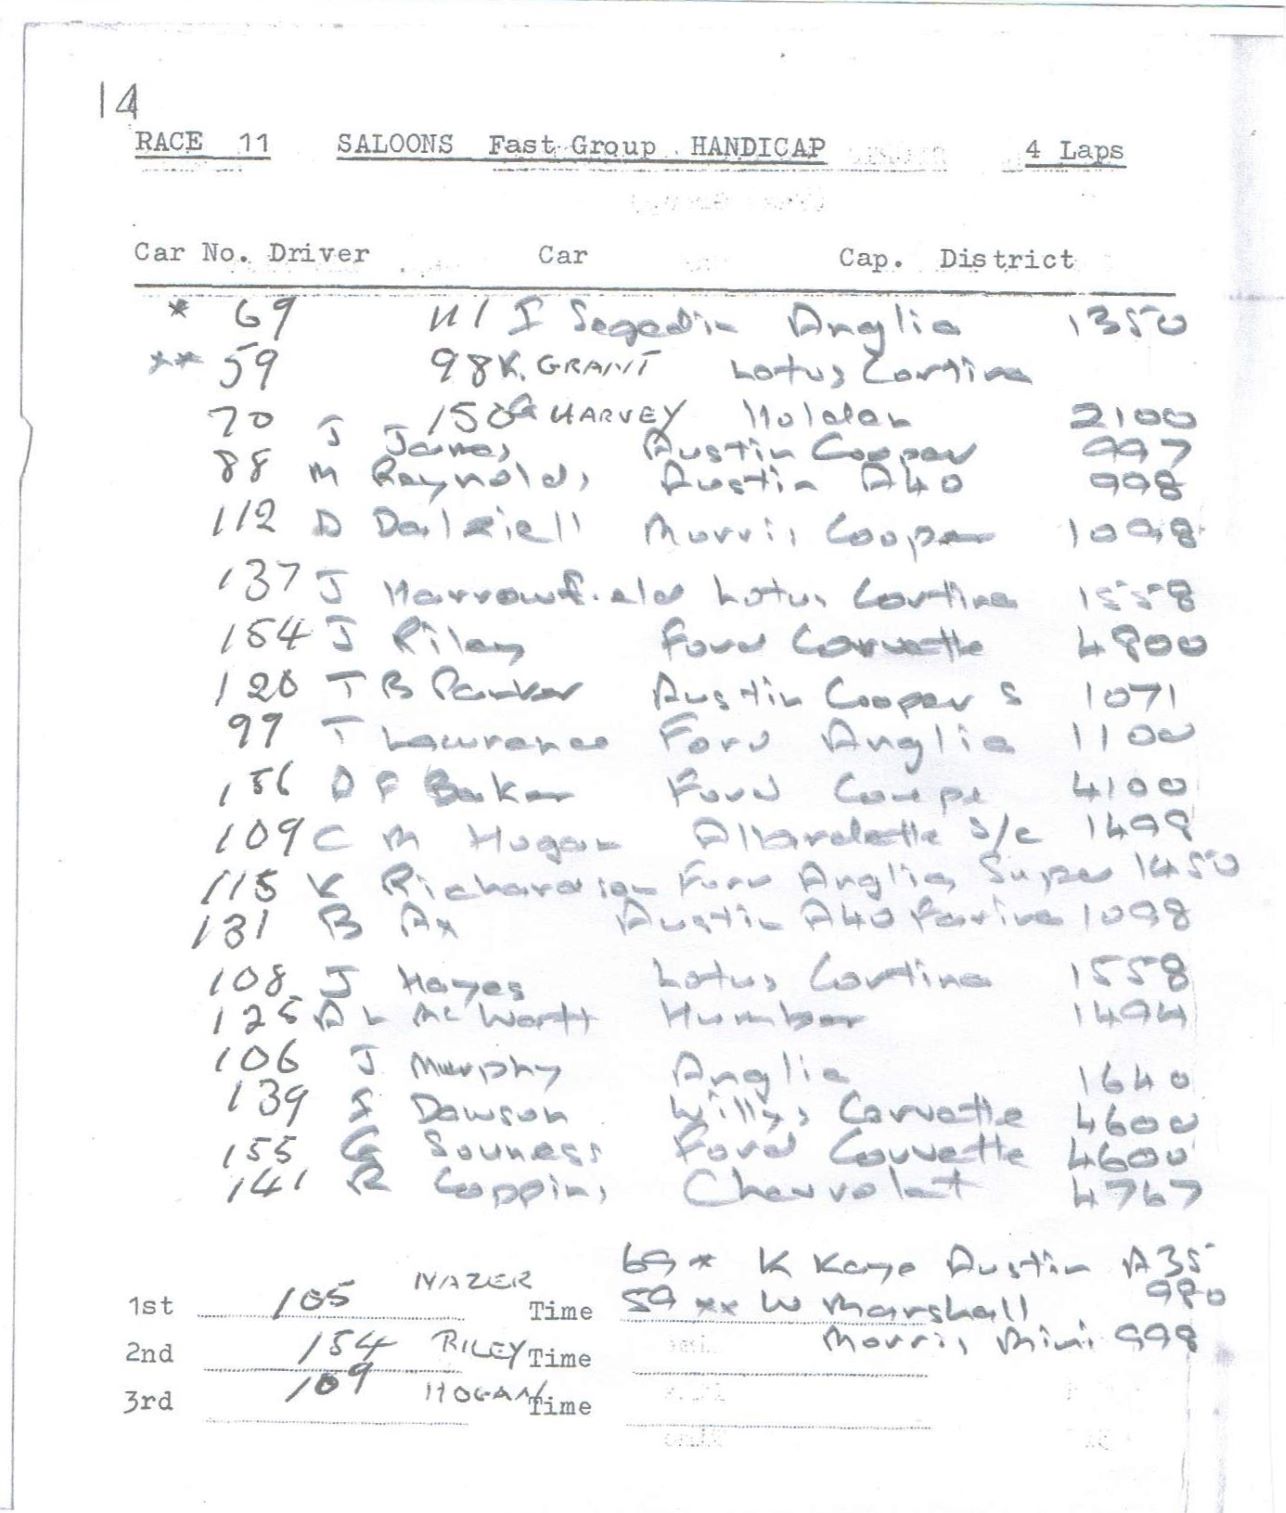 14
RACE 11 SALOONS Fast Group HANDICAP 4 Laps
Car No. Driver Car Cap. District
* 69 111 I Segedin Anglia 1350
** 59 98 K. GRANT Lotus Cortina
70 150 G HARVEY Holden 2100
J James Austin Cooper 997
88 M Reynolds Austin A40 998
112 D Dalziell Morris Cooper 1098
137 J Harrowfield Lotus Cortina 1558
154 J Riley Ford Corvette 4800
120 T B Parker Austin Cooper S 1071
99 T Lawrence Ford Anglia 1100
156 D F Baker Ford Coupe 4100
109 C M Hogan Allardette S/C 1498
115 K Richardson Ford Anglia Super 1450
131 B Ax Austin A40 Farina 1098
108 J Hayes Lotus Cortina 1558
125 A L McWatt Humber 1494
106 J Murphy Anglia 1640
139 S Dawson Willys Corvette 4600
155 G Souness Ford Corvette 4600
141 R Coppins Chevrolet 4767
69 * K Kaye Austin A35
980
1st 105 NAZER Time 59 ** W Marshall
Morris Mini 998
2nd 154 RILEY Time
3rd 109 HOGAN Time